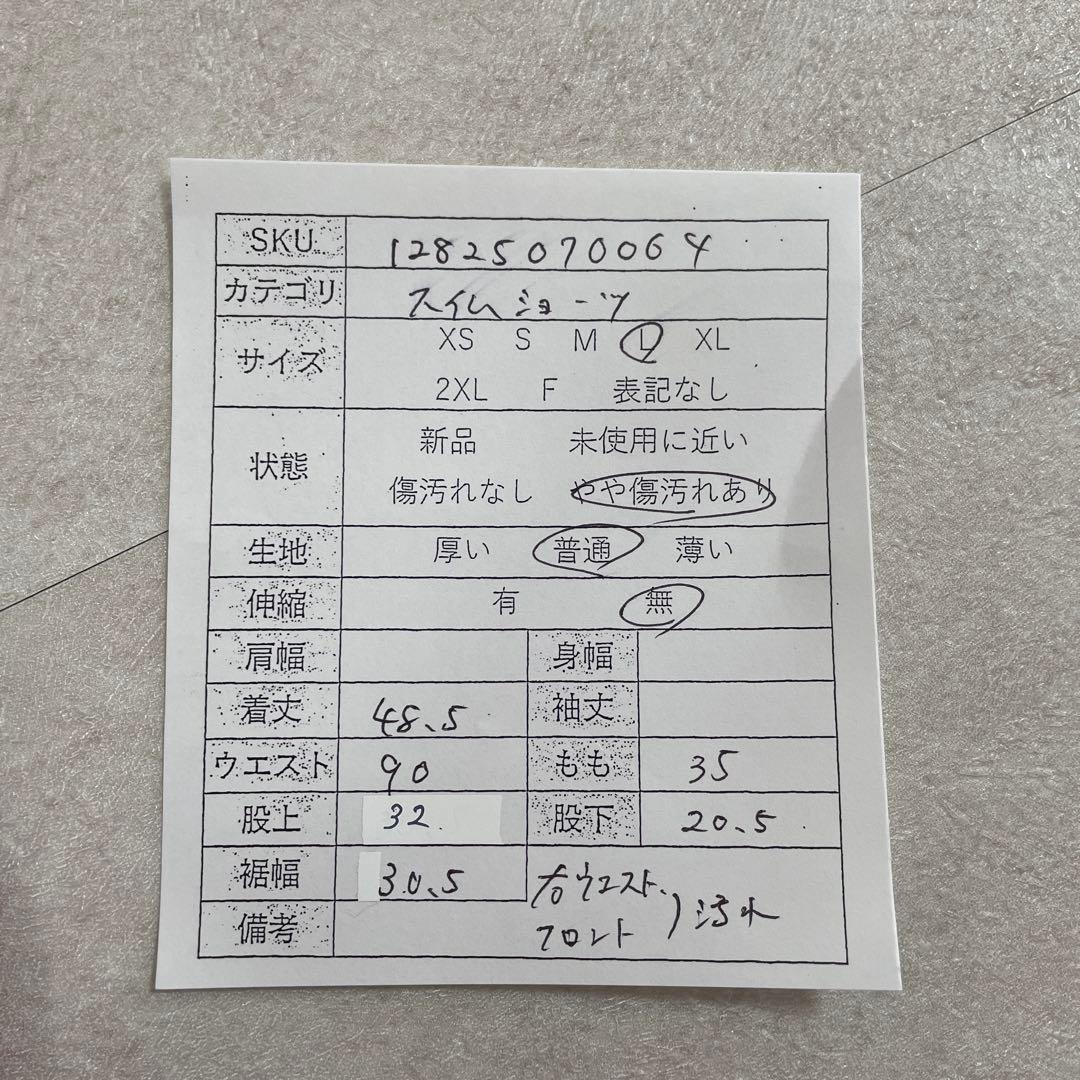 SKU 12825070064
カテゴリ スイムショーツ
サイズ XS S M L XL
2XL F 表記なし
状態 新品 未使用に近い
傷汚れなし やや傷汚れあり
生地 厚い 普通 薄い
伸縮 有 無
肩幅 身幅
着丈 48.5 袖丈
ウエスト 90 もも 35
股上 32 股下 20.5
裾幅 30.5 右ウエスト、
備考 フロント )汚れ